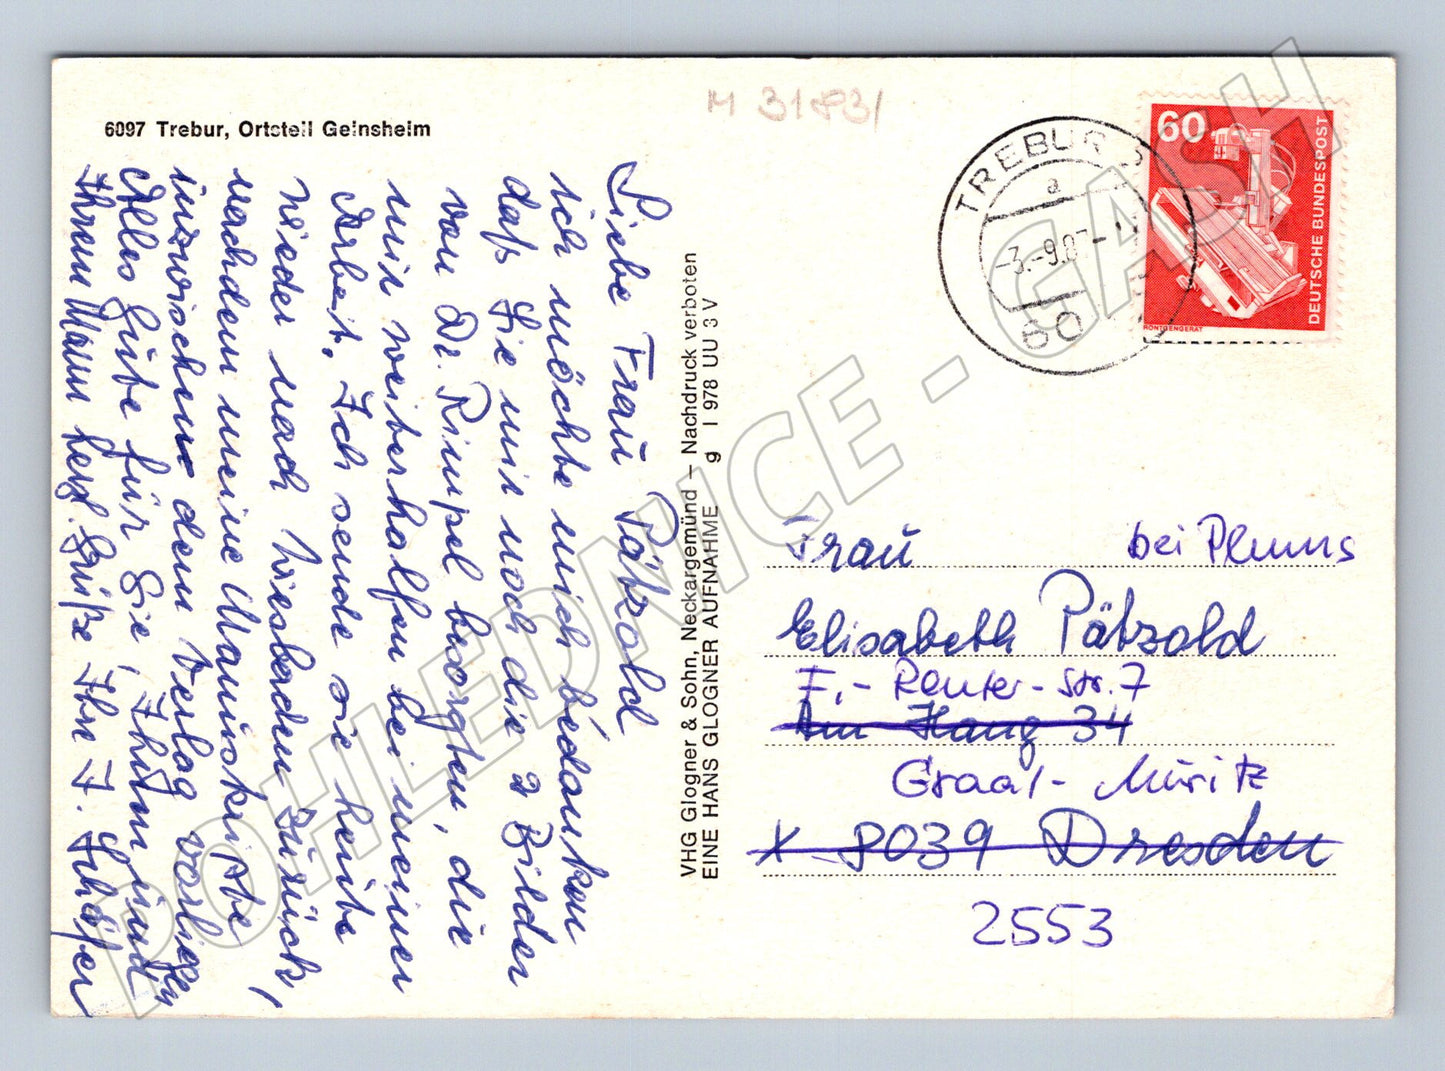 M 31831
6097 Trebur, Ortsteil Geinsheim
Liebe Frau Pätzold
ich möchte mich bedanken
daß Sie mir noch die 2 Bilder
von Dr. Rimpel besorgten, die
mir weiterhalfen bei meiner
Arbeit. Ich sende sie heute
wieder nach Wiesbaden zurück,
nachdem meine Manuskripte
inzwischen dem Verlag vorliegen
Alles Gute für Sie, Ihnen und
Ihrem Mann herzl. Grüße Ihr F. Schäfer
VHG Glogner & Sohn, Neckargemünd – Nachdruck verboten
EINE HANS GLOGNER AUFNAHME g I 978 UU 3 V
TREBUR 3
a
-3.-9.87-
60
60
DEUTSCHE BUNDESPOST
RÖNTGENGERÄT
Frau bei Plums
Elisabeth Pätzold
F.-Reuter-Str. 7
Am Hang 34
Graal-Müritz
X 8039 Dresden
2553
POHLEDNICE - GASH